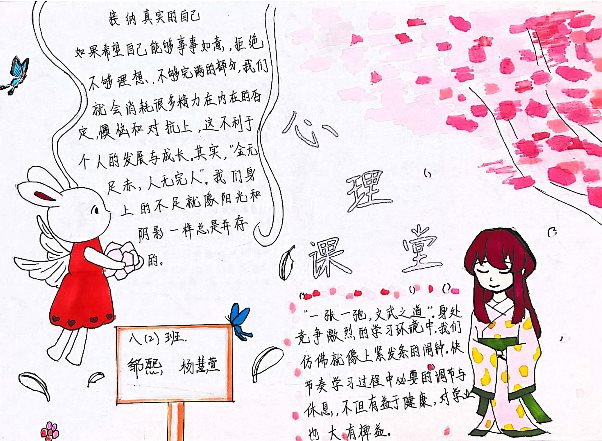 接纳真实的自己
如果希望自己能够事事如意，拒绝
不够理想、不够完满的部分，我们
就会消耗很多精力在内在的否
定、模仿和对抗上，这不利于
个人的发展与成长。其实，“金无
足赤，人无完人”。我们身
上的不足就像阳光和
阴影一样总是并存
的。
心理课堂
“一张一弛，文武之道”，身处
竞争激烈的学习环境中，我们
仿佛就像上紧发条的闹钟。快
节奏学习过程中必要的调节与
休息，不但有益于健康，对学业
也大有裨益。
八(2)班
邹熙，杨慧萱